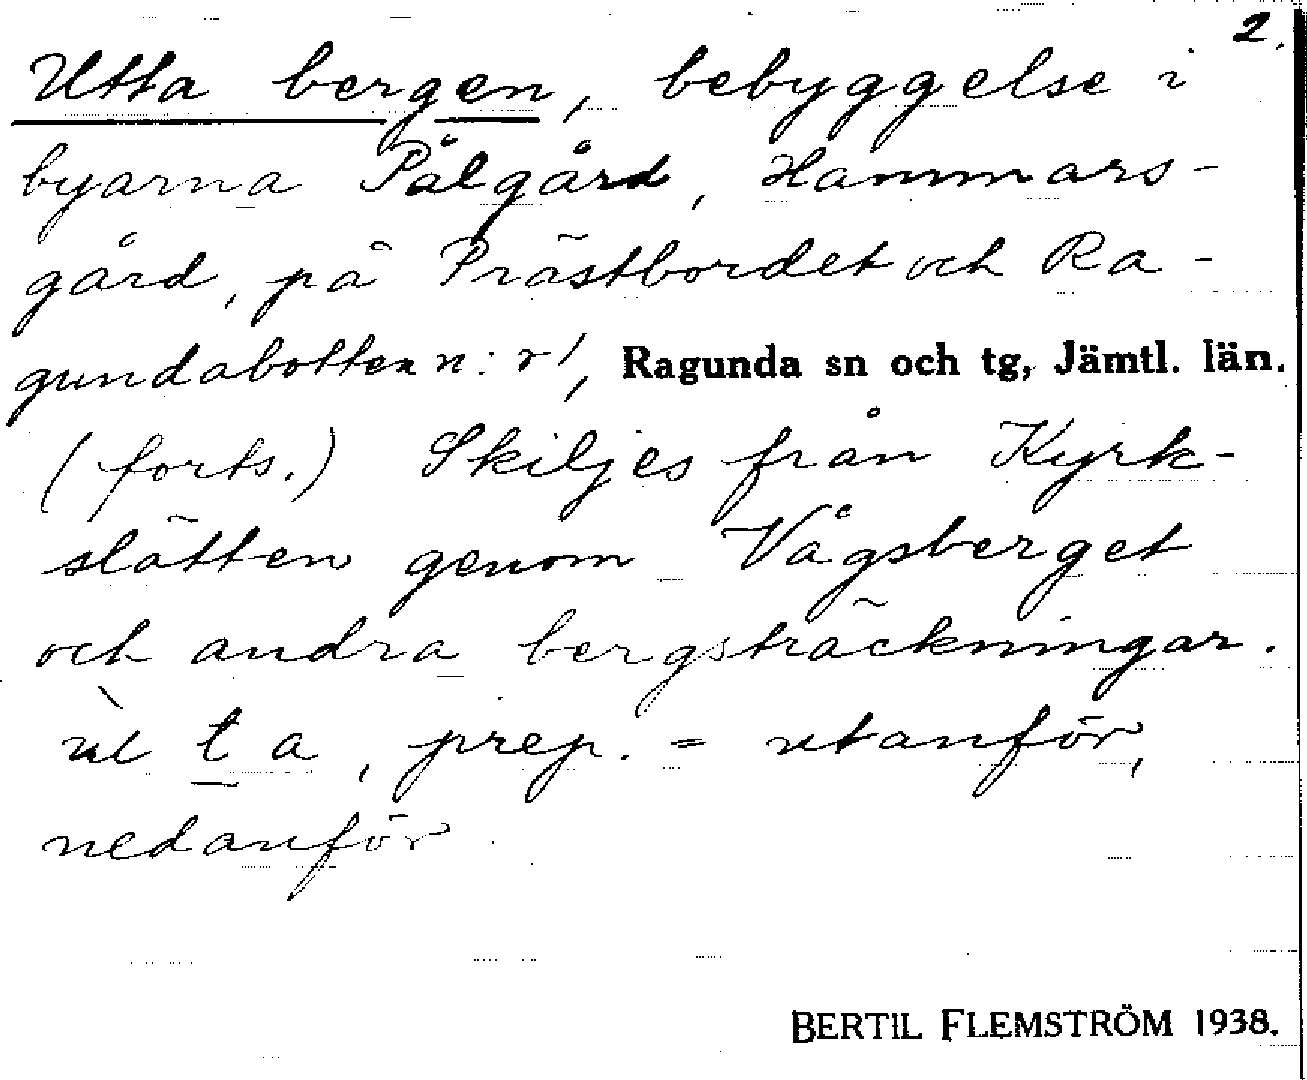 2.
Utta bergen, bebyggelse i
byarna Pålgård, Hammars-
gård, på Prästbordet och Ra-
gundabotten n:r 1, Ragunda sn och tg, Jämtl. län.
(forts.) Skiljes från Kyrk-
slätten genom Vågsberget
och andra bergsträckningar.
ùt ta, prep. = utanför,
nedanför.
BERTIL FLEMSTRÖM 1938.